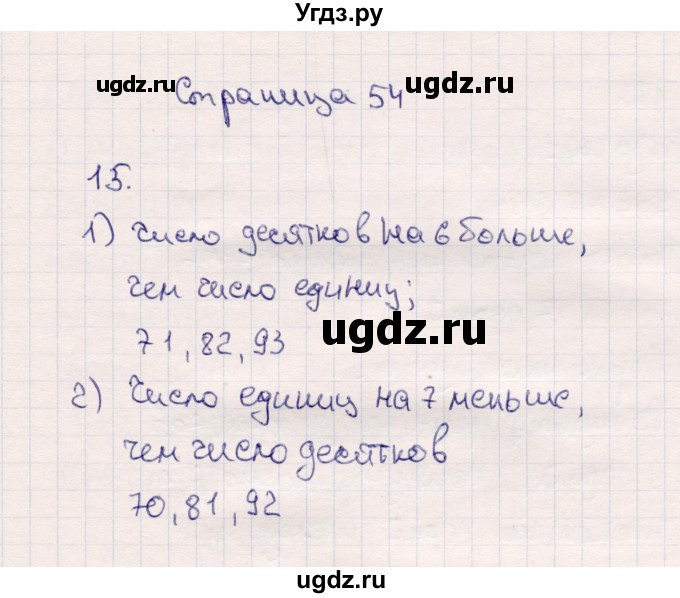 Угдз.ру
ugdz.ru Страница 54 ugdz.ru
15.
1) Число десятков на 6 больше,
чем число единиц;
ugdz.ru
71, 82, 93
2) Число единиц на 7 меньше,
чем число десятков
70, 81, 92
ugdz.ru